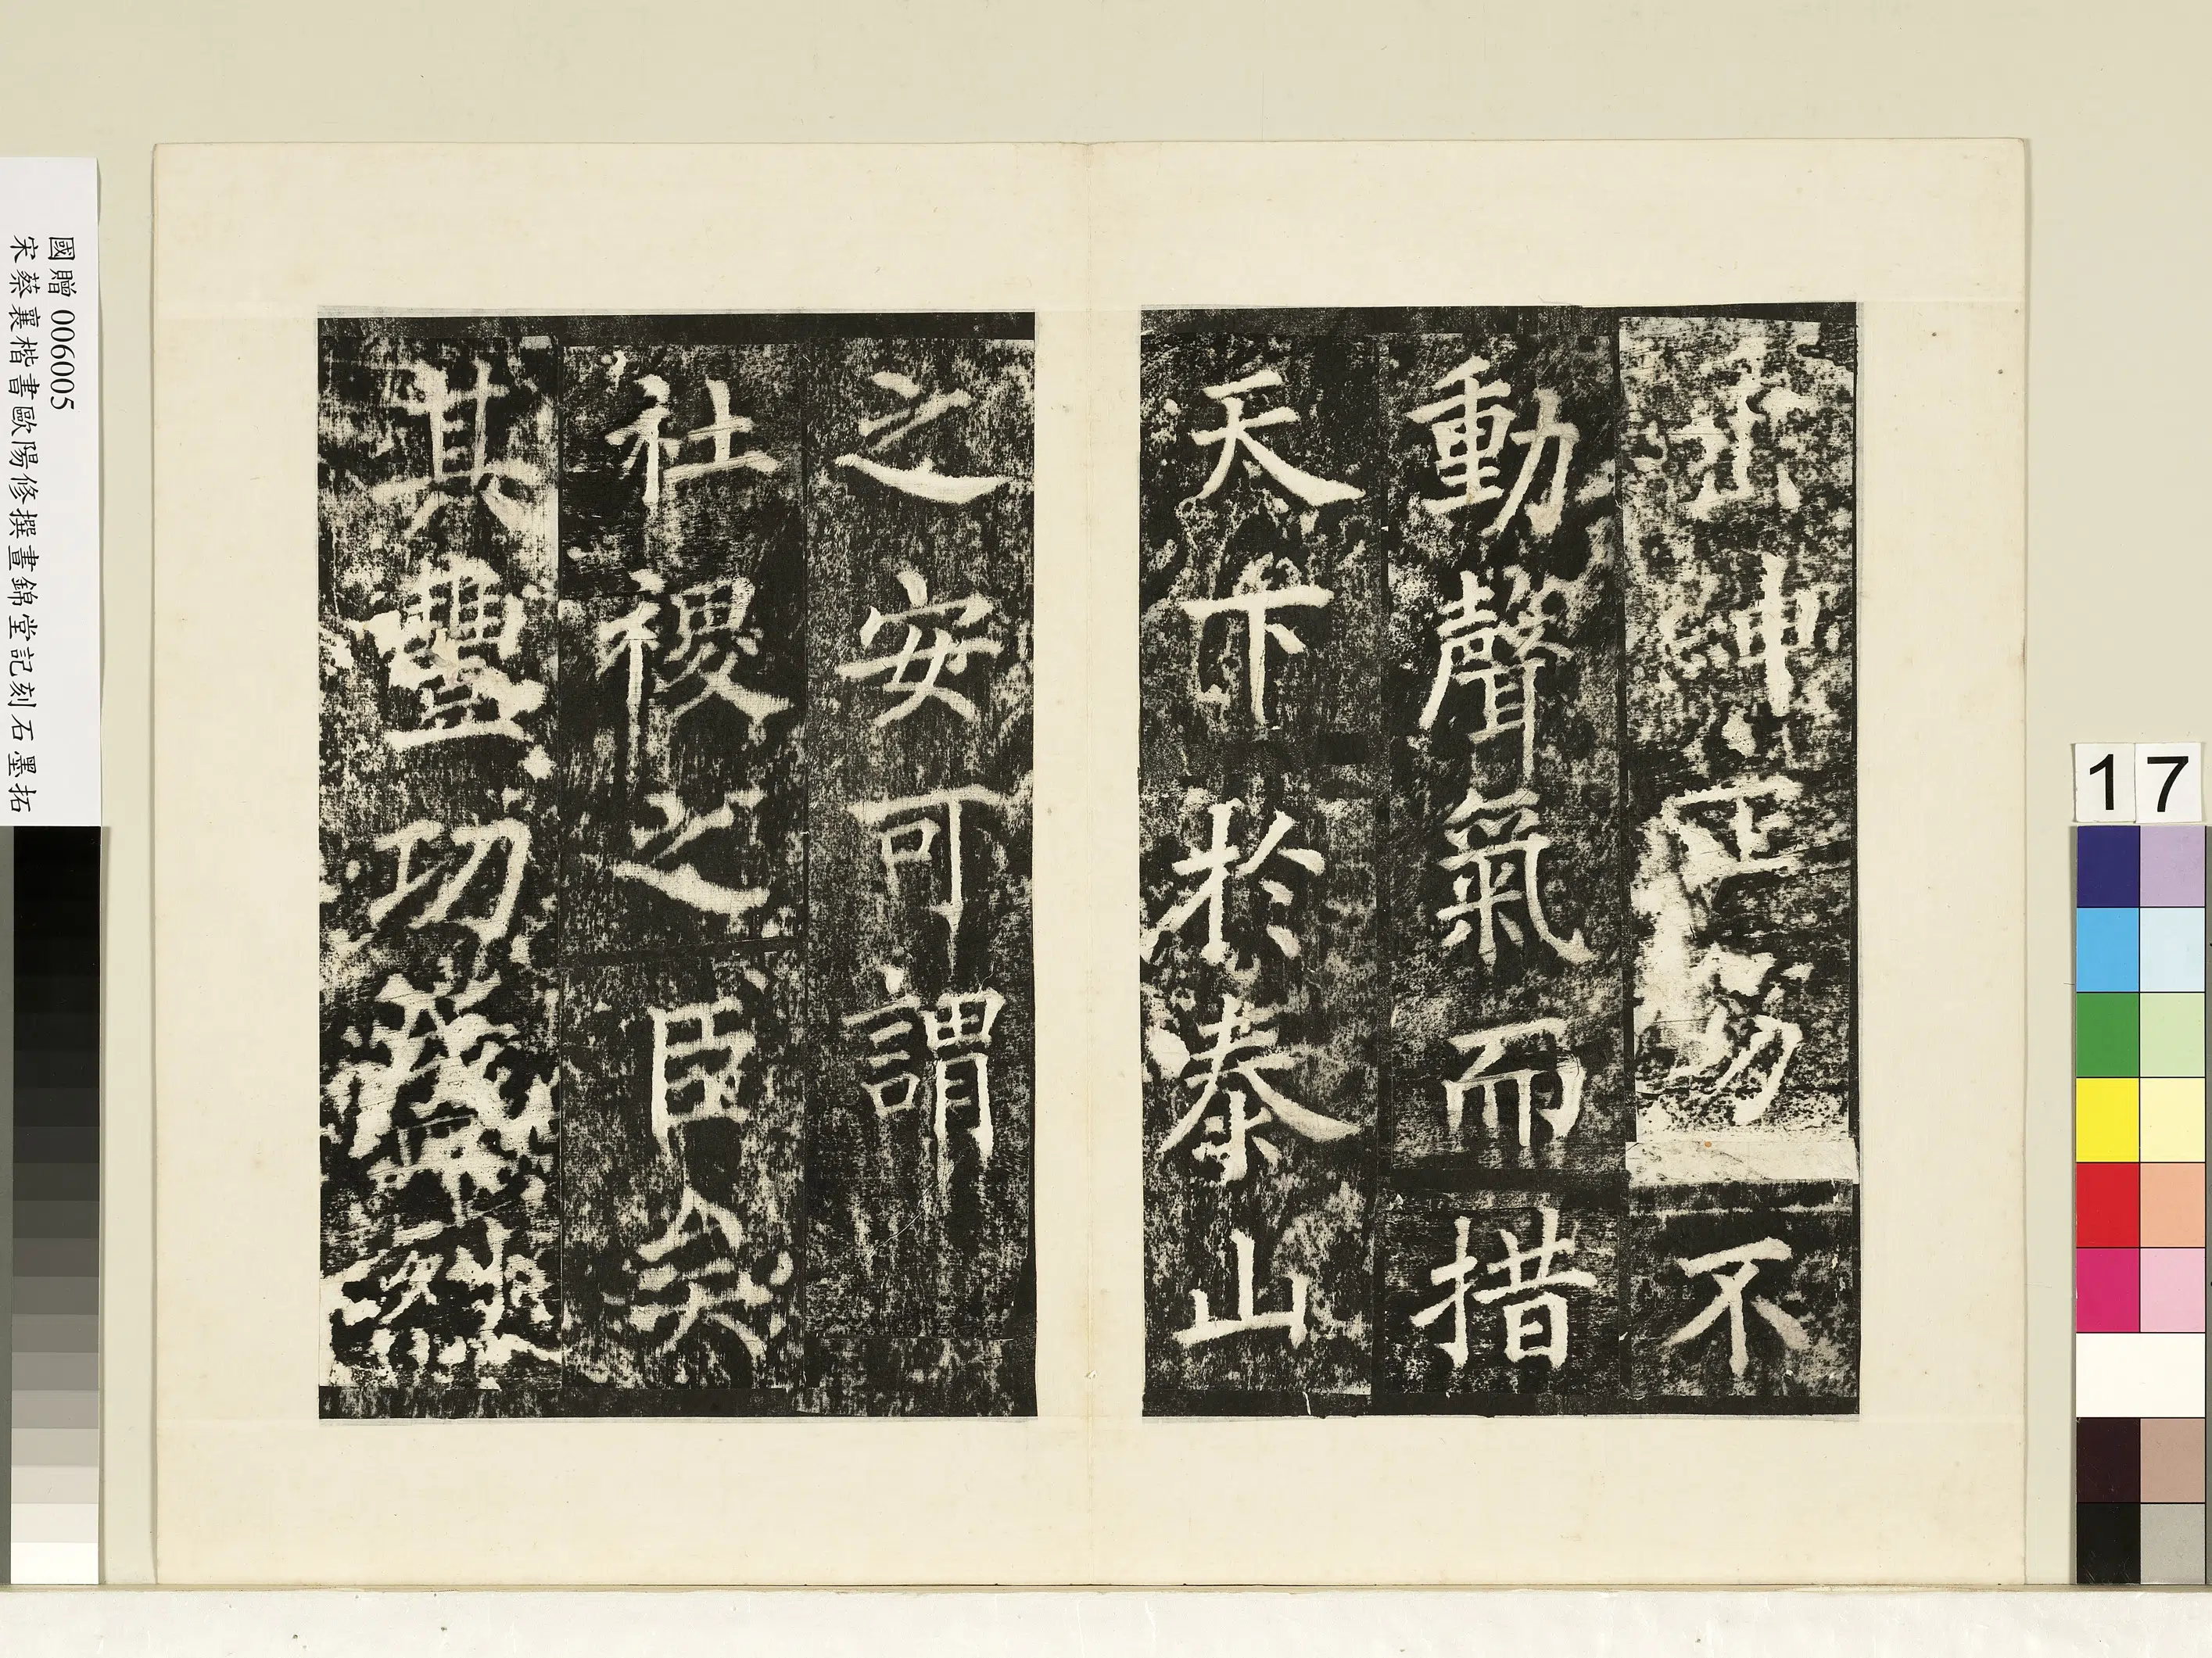 紳正笏不
動聲氣而措
天下於泰山
之安可謂
社稷之臣矣
其豐功
國贈 006005
宋蔡襄楷書歐陽修撰晝錦堂記刻石墨拓
17